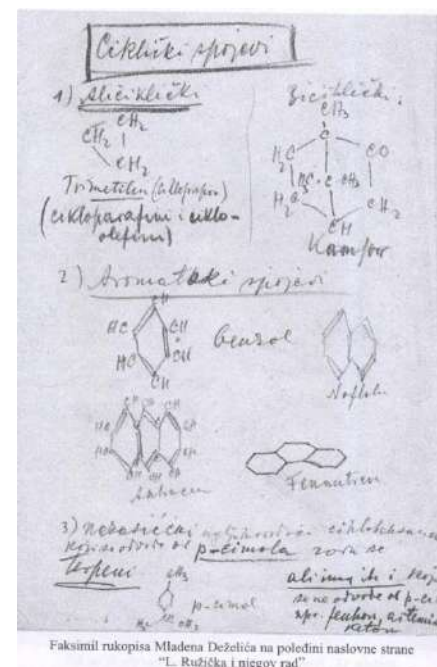 Ciklički spojevi
1) Aliciklički
CH2
CH2
CH2
Trimetilen (ciklopropan)
(cikloparafini i ciklo-
olefini)
Biciklički:
CH3
C
H2C
CO
H3C·C·CH3
H2C
CH2
CH
Kamfor
2) Aromatski spojevi
CH
HC
CH
HC
CH
CH
benzol
Naftalin
Antracen
Fenantren
3)
koji se odvode od p-cimola zovu se
terpeni
CH3
p-cimol
H3C CH3
ali ima ih i koji
se ne odvode od p-ci
npr. fenhon,
keton
Faksimil rukopisa Mladena Deželića na poleđini naslovne strane
"L. Ružička i njegov rad"